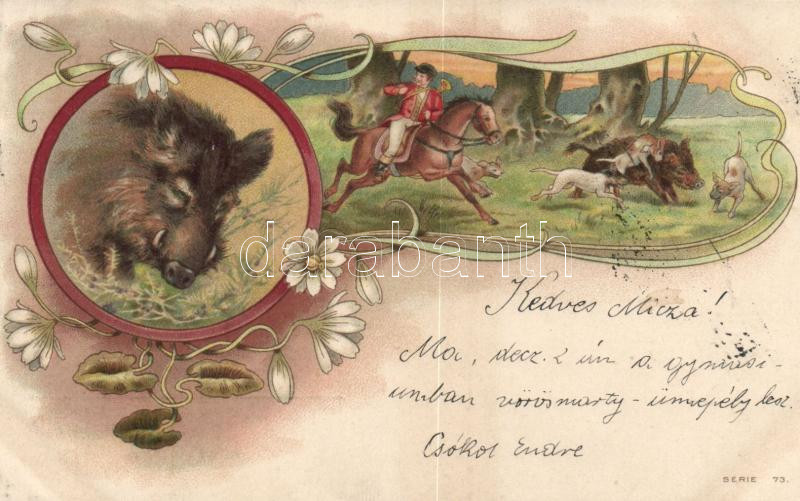 darabanth.com
Kedves Micza!
Ma, decz. 2 án a gymnasi-
umban vörösmarty-ünnepély lesz.
Csókol Endre
SERIE 73.